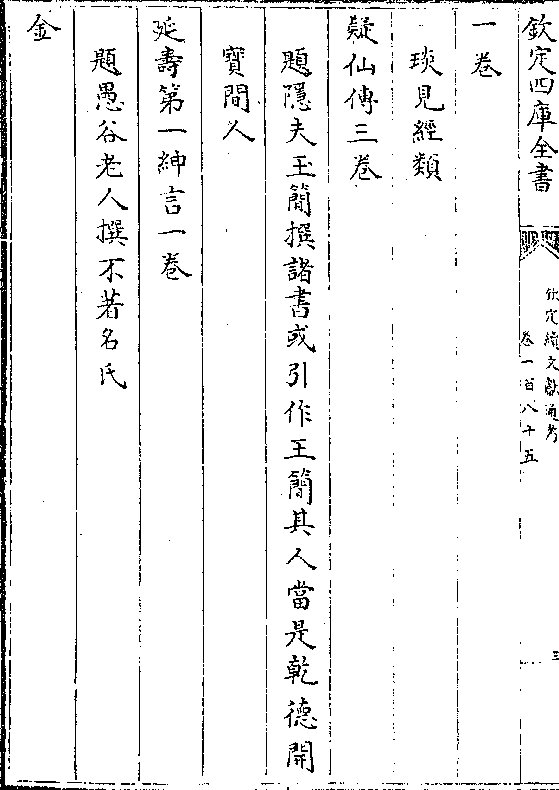 欽定四庫全書
欽定續文獻通考
卷一百八十五
三
一卷
琰見經類
疑仙傳三卷
題隱夫玉簡撰諸書或引作王簡其人當是乾德開
寶間人
延壽第一紳言一卷
題愚谷老人撰不著名氏
金